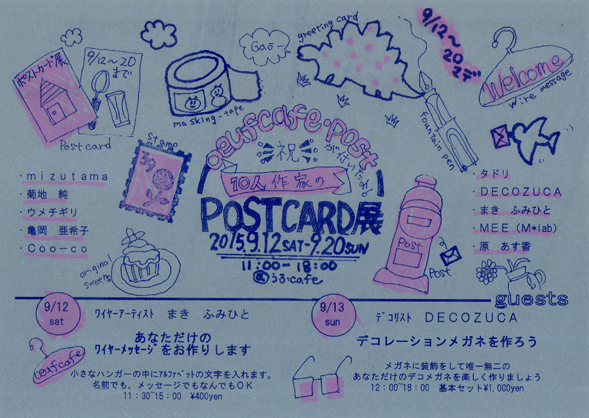 ポストカード展
9/12〜20
まで
Postcard
masking-tape
Gaō-
greeting card
9/12〜20
マデ
fountain pen
Welcome
wire message
stamp
oeufcafe・post
祝
が付いたよ。
10人作家の
POSTCARD展
2015.9.12SAT-9.20SUN
11:00-18:00
うふcafe
・mizutama
・菊地 純
・ウメチギリ
・亀岡 亜希子
・Coo-co
original
sweets
Post
Post
・タドリ
・DECOZUCA
・まき ふみひと
・MEE (M*lab)
・原 あす香
guests
9/12
sat
ワイヤーアーティスト まき ふみひと
あなただけの
ワイヤーメッセージをお作りします
oeufcafe
小さなハンガーの中にアルファベットの文字を入れます。
名前でも、メッセージでもなんでもOK
11:30~15:00 ¥400yen
9/13
sun
デコリスト DECOZUCA
デコレーションメガネを作ろう
メガネに装飾をして唯一無二の
あなただけのデコメガネを楽しく作りましょう
12:00~18:00 基本セット¥1,000yen